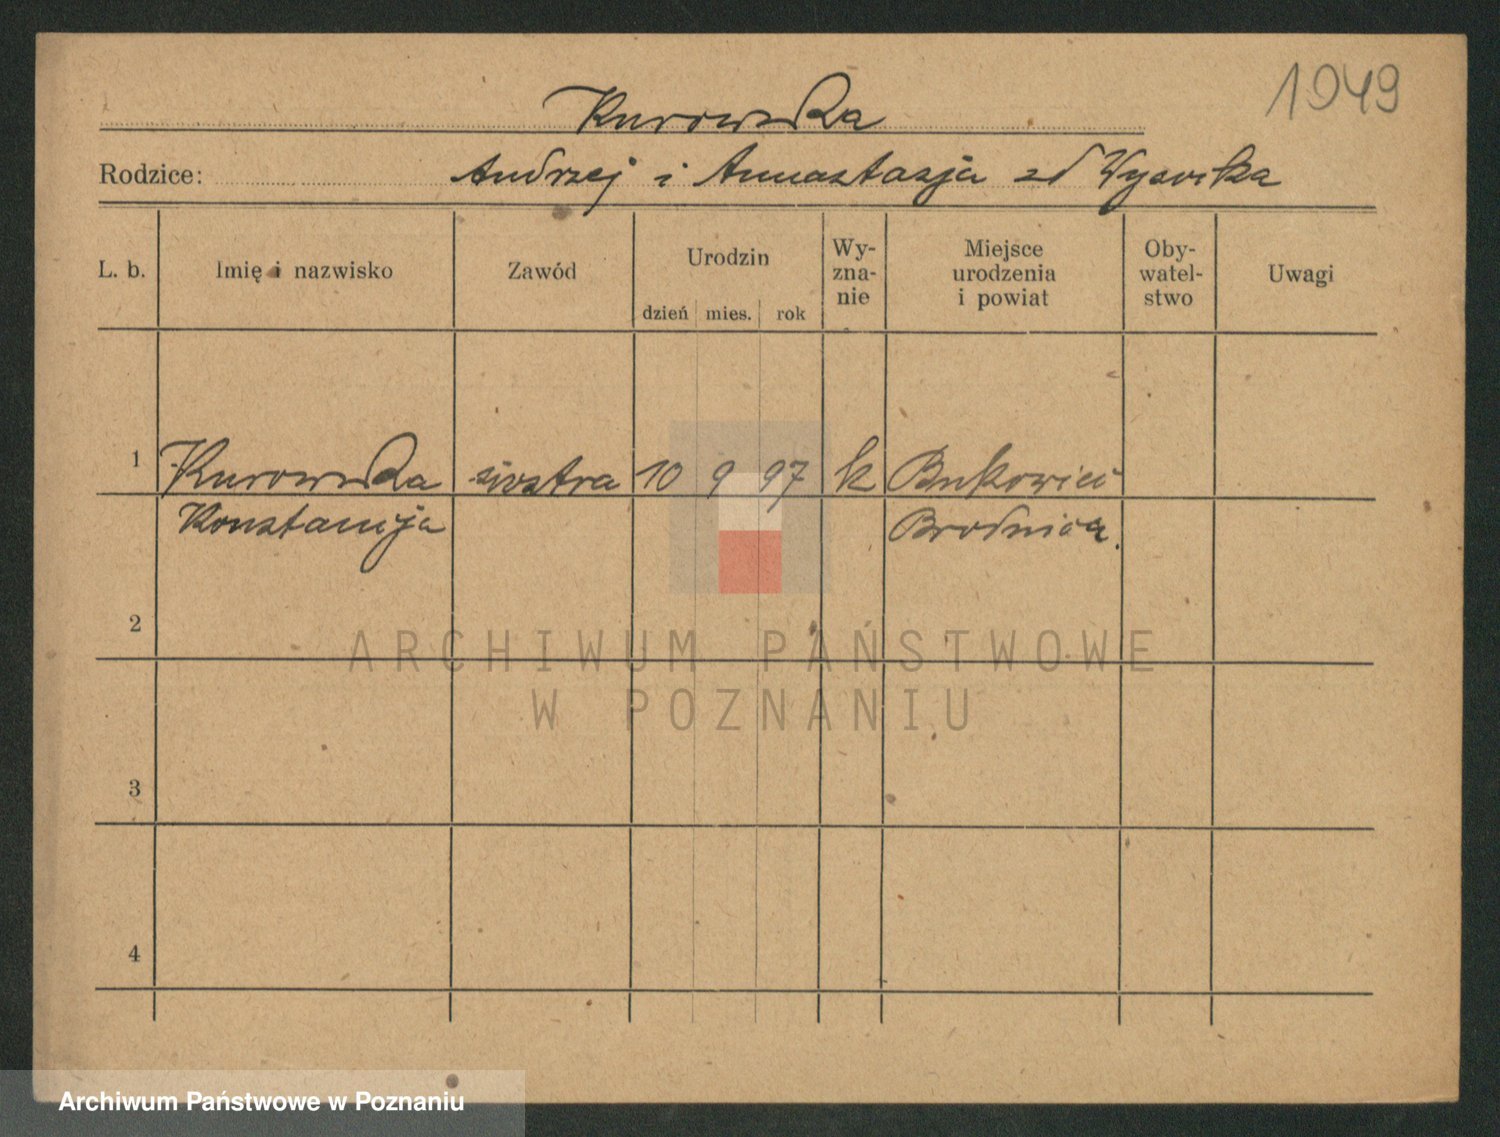 1949
Kurowska
Rodzice: Andrzej i Annastazja zd
L. b. Imię i nazwisko Zawód Urodzin dzień mies. rok Wy-zna-nie Miejsce urodzenia i powiat Oby-watel-stwo Uwagi
1 Kurowska siostra 10 9 97 k Bukowiec
Konstancja Brodnica.
2
ARCHIWUM PAŃSTWOWE
W POZNANIU
3
4
Archiwum Państwowe w Poznaniu